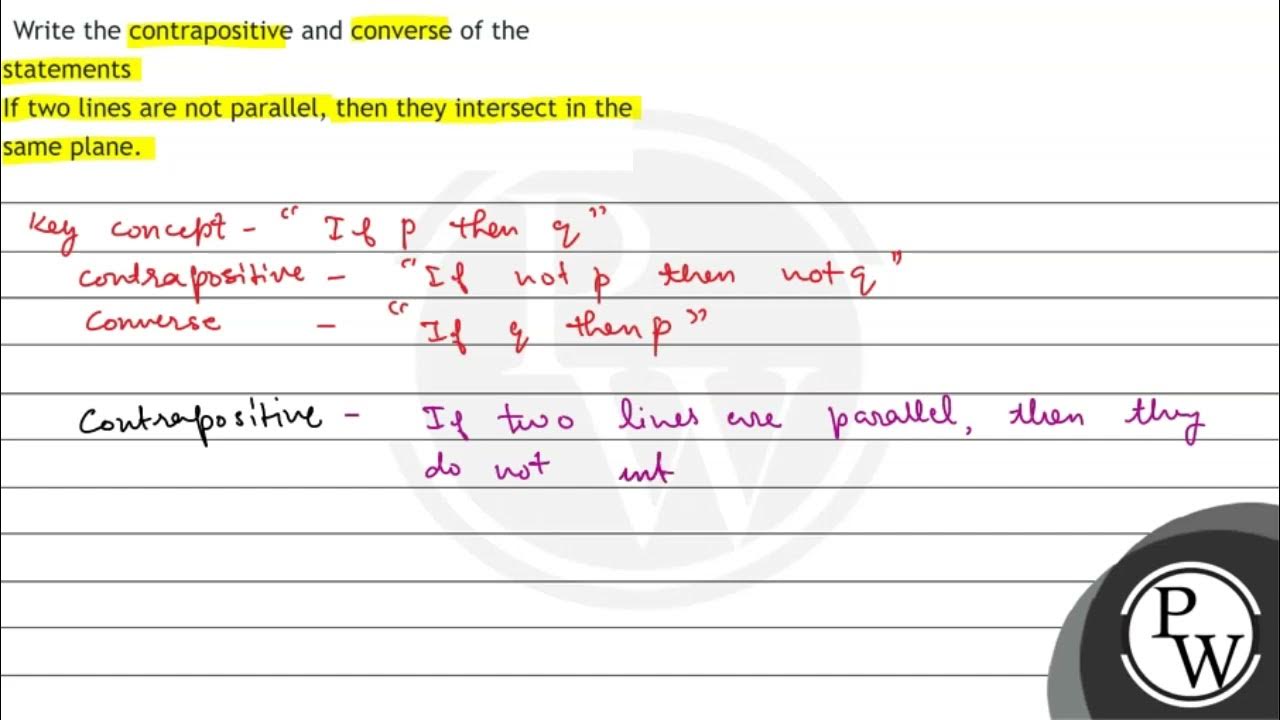 Write the contrapositive and converse of the
statements
If two lines are not parallel, then they intersect in the
same plane.
Key concept - " If p then q "
contrapositive - " If not p then not q "
Converse - " If q then p "
Contrapositive - If two lines are parallel, then they
do not int
P
W
P
W